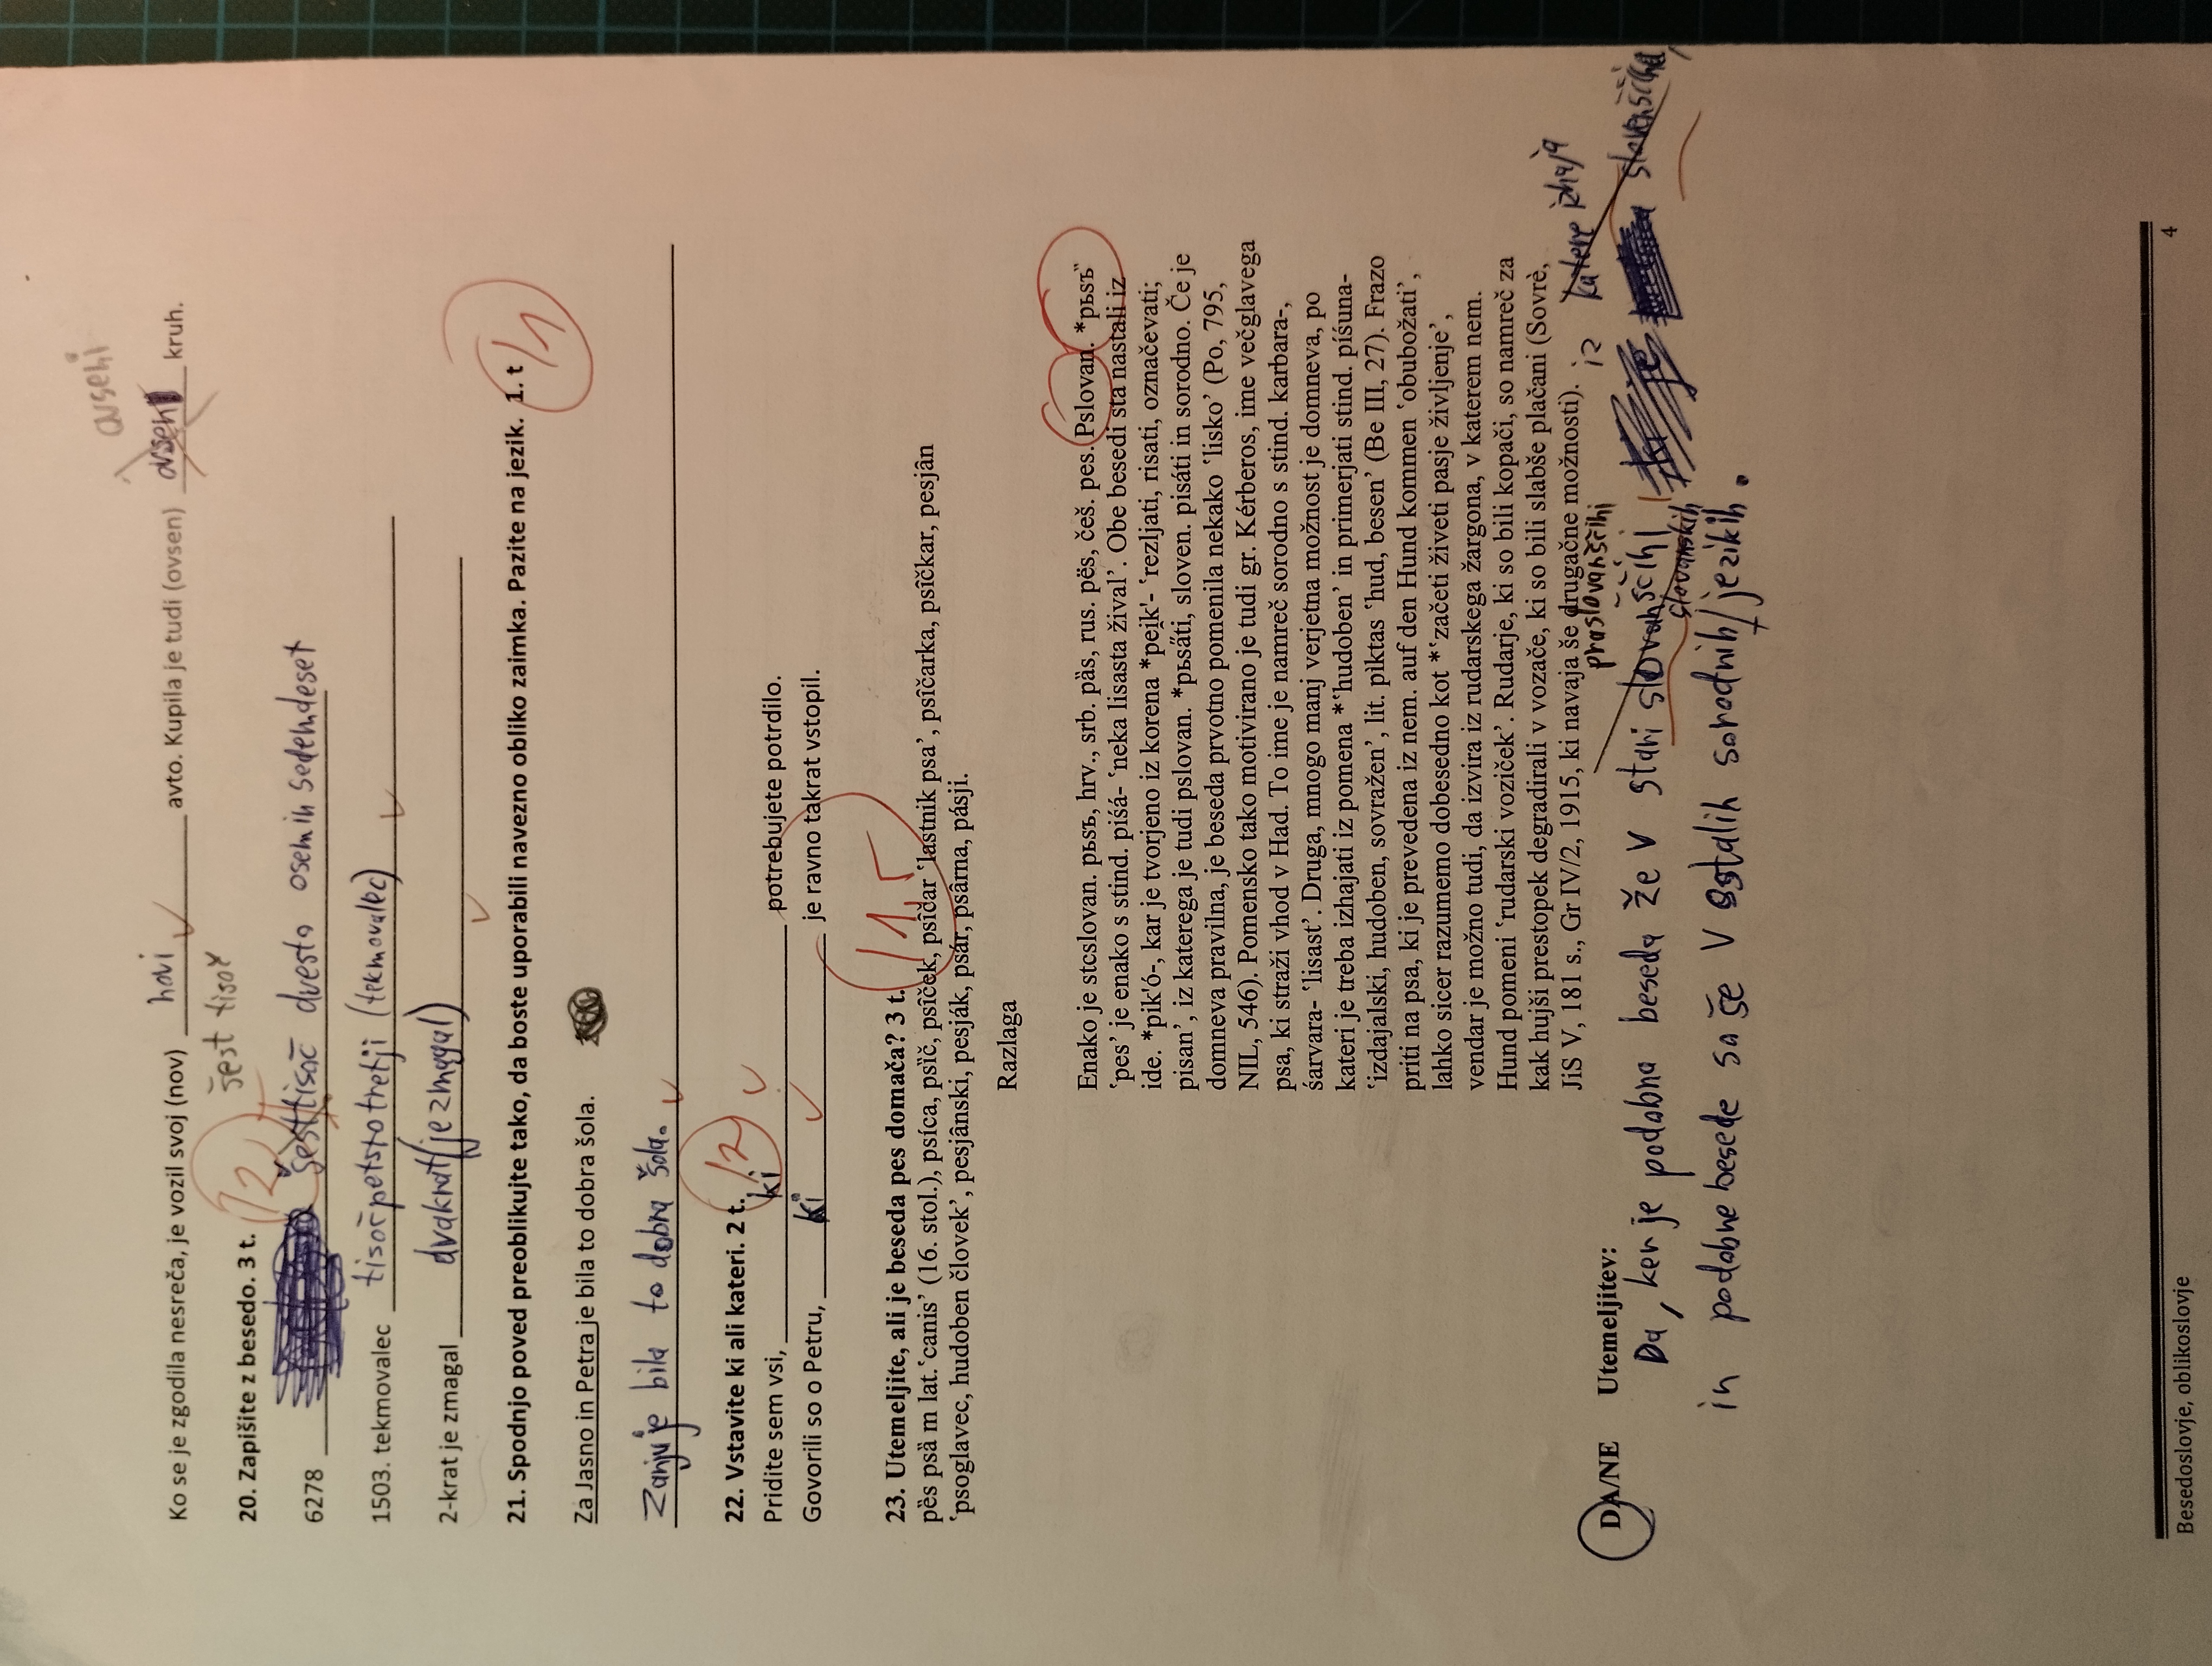 ovseni
Ko se je zgodila nesreča, je vozil svoj (nov) novi avto. Kupila je tudi (ovsen) ovsen kruh.
šest tisoč
20. Zapišite z besedo. 3 t. /2
6278 šesttisoč dvesto oseminsedemdeset
1503. tekmovalec tisočpetstotretji (tekmovalec)
2-krat je zmagal dvakrat (je zmagal)
21. Spodnjo poved preoblikujte tako, da boste uporabili navezno obliko zaimka. Pazite na jezik. 1. t /1
Za Jasno in Petra je bila to dobra šola.
Zanju je bila to dobra šola.
22. Vstavite ki ali kateri. 2 t. /2
Pridite sem vsi, ki potrebujete potrdilo.
Govorili so o Petru, ki je ravno takrat vstopil.
23. Utemeljite, ali je beseda pes domača? 3 t. /1,5
pȅs psȁ m lat.‛canis’ (16. stol.), psíca, psȉč, psȋček, psȋčar ‛lastnik psa’, psȋčarka, psȋčkar, pesjȃn
‛psoglavec, hudoben človek’, pesjȃnski, pesják, psár, psȃrna, pásji.
Razlaga
Enako je stcslovan. pьsъ, hrv., srb. pȁs, rus. pës, češ. pes. Pslovan. *pьsъ̏
‛pes’ je enako s stind. piśá- ‛neka lisasta žival’. Obe besedi sta nastali iz
ide. *pik'ó-, kar je tvorjeno iz korena *pei̯k'- ‛rezljati, risati, označevati;
pisan’, iz katerega je tudi pslovan. *pьsa̋ti, sloven. pisáti in sorodno. Če je
domneva pravilna, je beseda prvotno pomenila nekako ‛lisko’ (Po, 795,
NIL, 546). Pomensko tako motivirano je tudi gr. Kérberos, ime večglavega
psa, ki straži vhod v Had. To ime je namreč sorodno s stind. karbara-,
śarvara- ‛lisast’. Druga, mnogo manj verjetna možnost je domneva, po
kateri je treba izhajati iz pomena *‛hudoben’ in primerjati stind. píśuna-
‛izdajalski, hudoben, sovražen’, lit. pìktas ‛hud, besen’ (Be III, 27). Frazo
priti na psa, ki je prevedena iz nem. auf den Hund kommen ‛obubožati’,
lahko sicer razumemo dobesedno kot *‛začeti živeti pasje življenje’,
vendar je možno tudi, da izvira iz rudarskega žargona, v katerem nem.
Hund pomeni ‛rudarski voziček’. Rudarje, ki so bili kopači, so namreč za
kak hujši prestopek degradirali v vozače, ki so bili slabše plačani (Sovrè,
JiS V, 181 s., Gr IV/2, 1915, ki navaja še drugačne možnosti).
DA/NE Utemeljitev:
praslovanščini iz katere izhaja
Da, ker je podobna beseda že v stari slovanščini, ki je slovenščina,
slovanskih
in podobne besede so še v ostalih sorodnih jezikih.
Besedoslovje, oblikoslovje
4